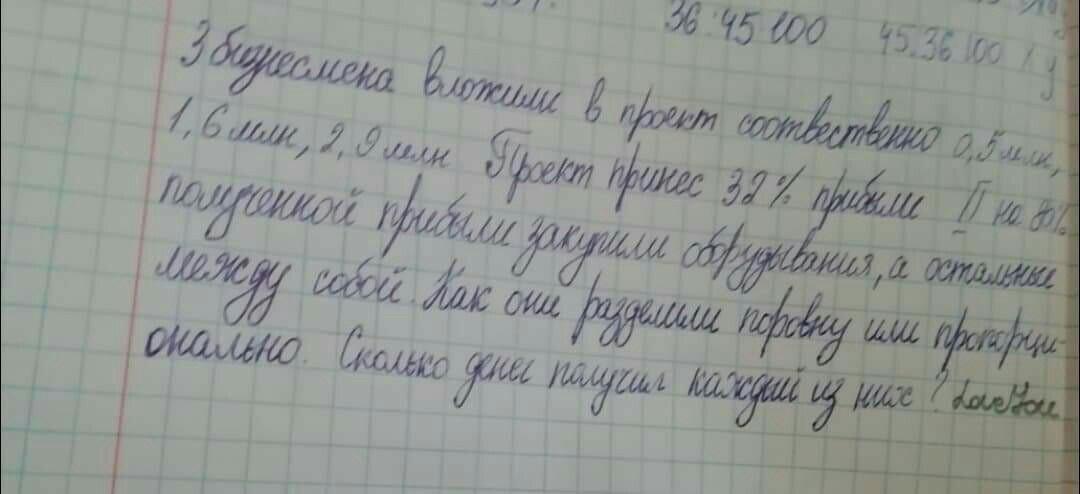 36:45·100 45:36·100
3 бизнесмена вложили в проект соотвественно 0,5 млн,
1,6 млн, 2,9 млн Проект принес 32% прибыли II на 80%
полученной прибыли закупили оборудывания, а остальные
между собой. Как они разделили поровну или пропорци-
онально. Сколько денег получил каждый из них? Love You